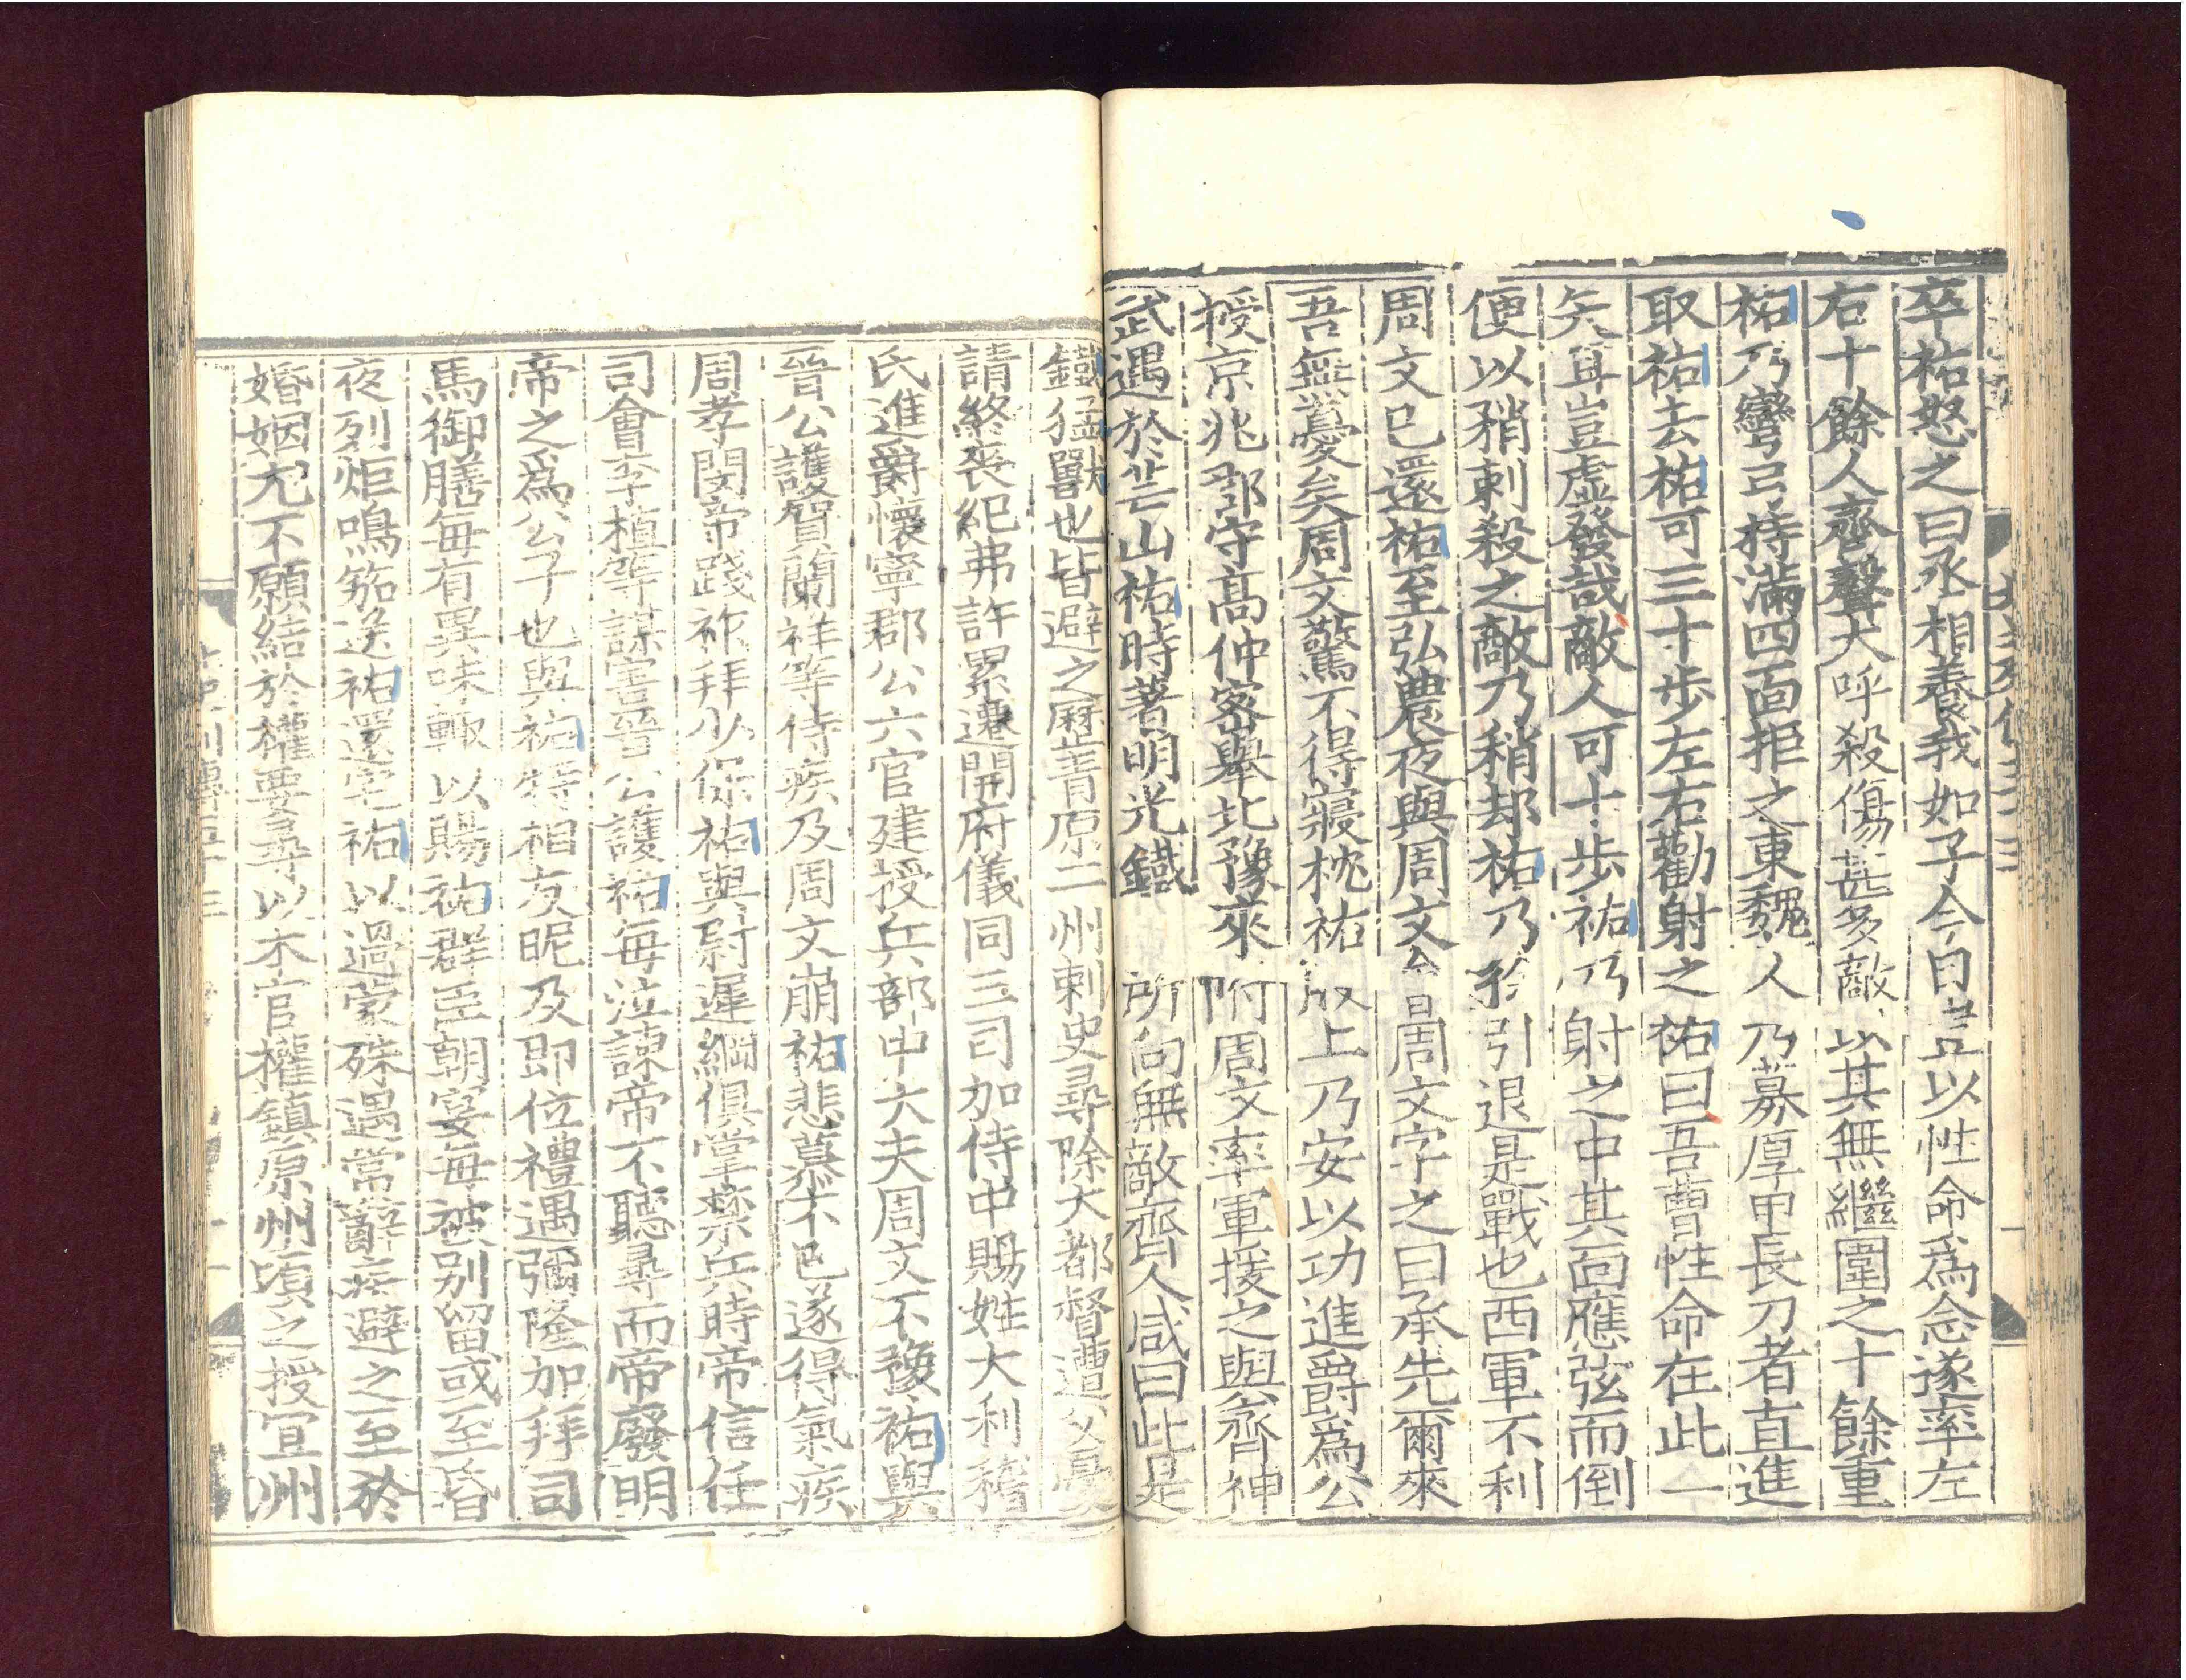 卒祐怒之曰丞相養我如子今日豈以性命爲念遂率左
右十餘人齊聲大呼殺傷甚多敵以其無繼圍之十餘重
祐乃彎弓持滿四面拒之東魏人乃募厚甲長刀者直進
取祐去祐可三十步左右勸射之祐曰吾曹性命在此一
矢耳豈虛發哉敵人可十步祐乃射之中其面應弦而倒
便以矟刺殺之敵乃稍却祐乃引退是戰也西軍不利
周文已還祐至弘農夜與周文會周文字之曰承先爾來
吾無憂矣周文驚不得寢枕祐股上乃安以功進爵爲公
授京兆郡守高仲密舉北豫來附周文率軍援之與齊神
武遇於芒山祐時著明光鐵所向無敵齊人咸曰此是
鐵猛獸也皆避之歷青原二州刺史尋除大都督遭父憂
請終喪紀弗許累遷開府儀同三司加侍中賜姓大利稽
氏進爵懷寧郡公六官建授兵部中大夫周文不豫祐與
晉公護賀蘭祥等侍疾及周文崩祐悲慕不已遂得氣疾
周孝閔帝踐祚拜少保祐與尉遲綱俱掌禁兵時帝信任
司會李植等謀害晉公護祐每泣諫帝不聽尋而帝廢明
帝之爲公子也與祐特相友昵及即位禮遇彌隆加拜司
馬御膳每有異味輙以賜祐群臣朝宴每被别留或至昏
夜列炬鳴笳送祐還宅祐以過蒙殊遇常辭疾避之至於
婚姻尤不願結於權要尋以本官權鎮原州頃之授宜州